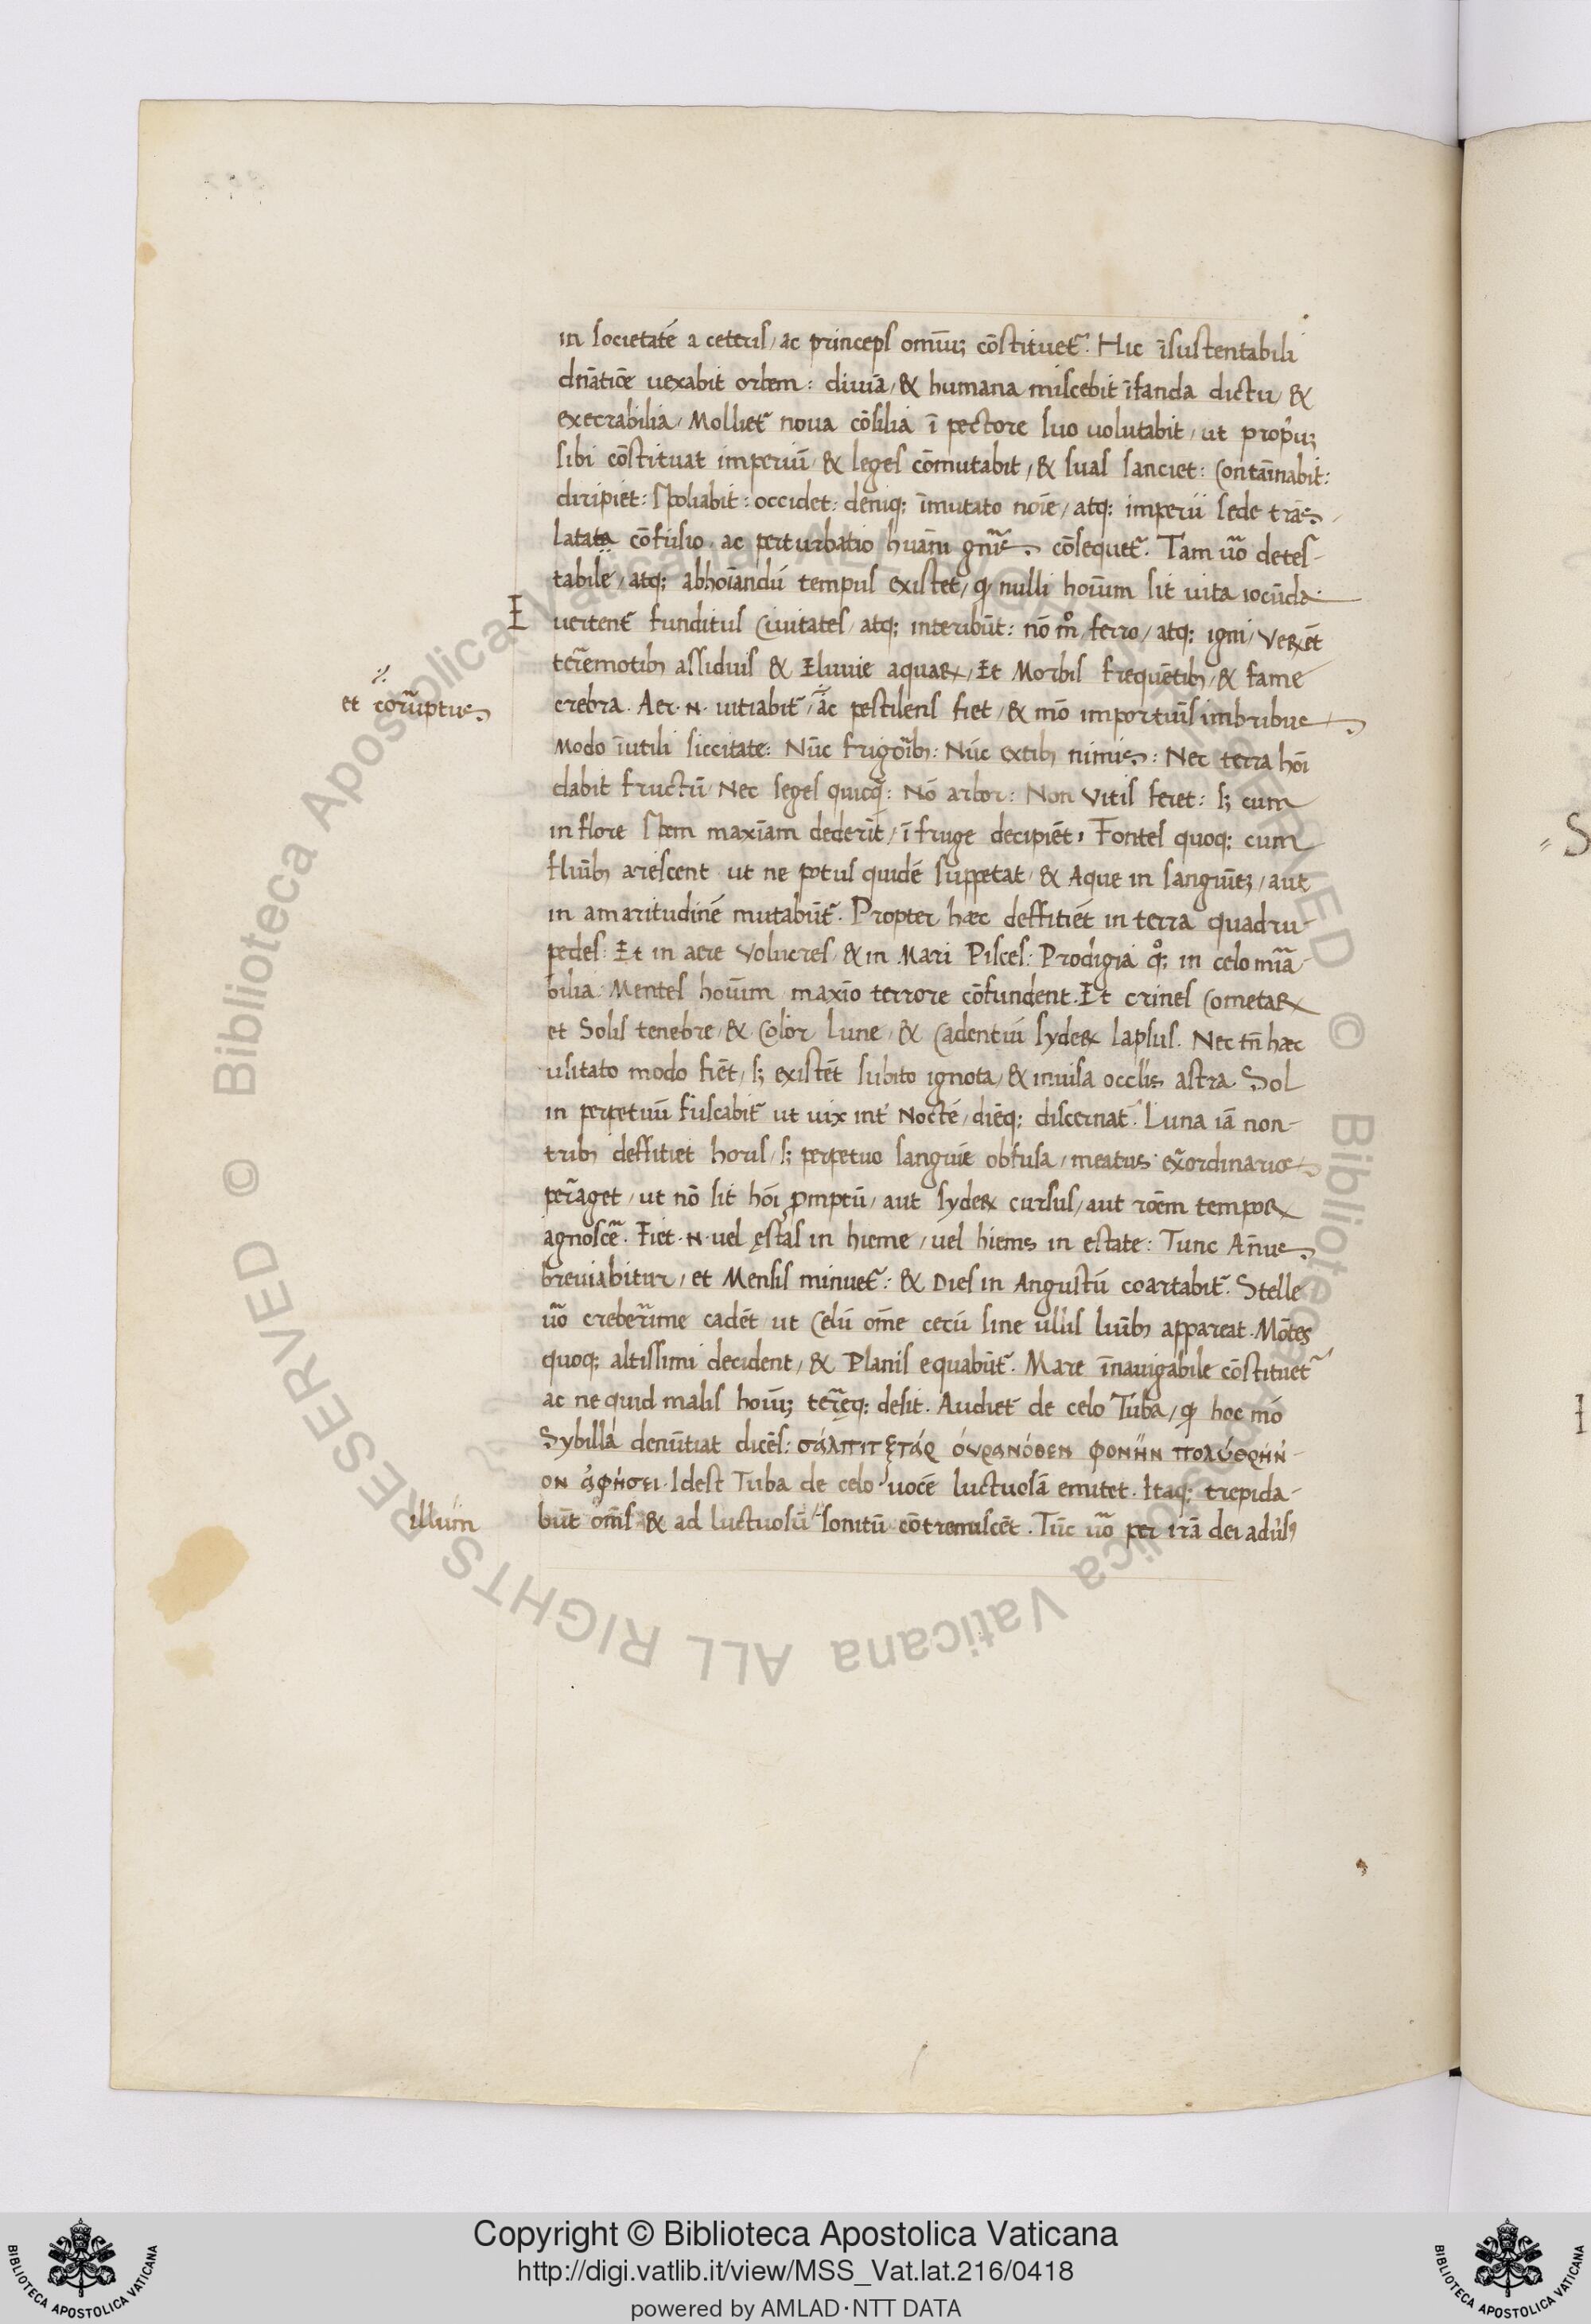 in societatē a ceteris, ac princeps omniū; cōstituet᷑. Hic īsustentabili
dn̄atiōe uexabit orbem: diuīa, & humana miscebit īfanda dictu, &
execrabilia, Molliet᷑ noua cōsilia ī pectore suo uolutabit, ut propriū;
sibi cōstituat imperiū, & leges cōmutabit, & suas sanciet: Contaīnabit:
diripiet: spoliabit: occidet: deniq; īmutato noīe, atq; imperii sede trās-
lata cōfusio, ac perturbatio huāni gn̄is cōsequet᷑. Tam uo̅ detes-
tabile, atq; abhoīandū tempus existet, ꝙ nulli hoīum sit uita iocūda
E uertent᷑ funditus Ciuitates, atq; interibūt: nō mo̅ ferro, atq; igni, Veꝝ ēt
terr̄emotibȝ assiduis & Eluuie aquaꝝ, Et Morbis frequētibȝ, & fame
et corruptus
crebra. Aer .N. uitiabit᷑, ac pestilens fiet, & mō importuīs imbribus
Modo īutili siccitate: Nūc frigoribȝ: Nūc extibȝ nimis: Nec terra hōi
dabit fructū Nec seges quicꝙ̄: Nō arbor: Non Vitis feret: sȝ cum
in flore spem maxīam dederīt, ī fruge decipiēt, Fontes quoq; cum
fluīībȝ arescent ut ne potus quidē suppetat, & Aque in sanguīeȝ, aut
in amaritudinē mutabūt᷑. Propter hæc deffitiēt in terra quadru-
pedes: Et in aere Volucres, & in Mari Pisces: Prodigia qͦ; in celo mīra-
bilia Mentes hoīum maxīo terrore cōfundent. Et crines Cometaꝝ
et Solis tenebre, & Color Lune, & Cadentiū sydeꝝ lapsus. Nec tn̄ hæc
usitato modo fiēt, sȝ existēt subito ignota, & inuisa occl̄is astra Sol
in perpetuū fuscabit᷑ ut uix int᷑ Noctē, diēq; discernat᷑. Luna iā non-
tribȝ deffitiet horis, sȝ perpetuo sanguīe obfusa, meatus exordinarios
peraget, ut nō sit hōi ꝓmptū, aut sydeꝝ cursus, aut roēm tempoꝝ
agnosce᷑. Fiet .N. uel ęstas in hieme, uel hiems in estate: Tunc An̄us
breuiabitur, et Mensis minuet᷑: & Dies in Angustū coartabit᷑. Stelle
uo̅ creberrime cadēt ut Celū om̄e cecū sine ullis luībȝ appareat. Mōtes
quoq; altissimi decident, & Planis equabūt᷑. Mare īnauigabile cōstituet᷑
ac ne quid malis hoīū; terręq; desit. Audiet᷑ de celo Tuba, ꝙ hoc mō
Sybilla denūtiat dicēs: σάλπιπξτάρ όυρανόθεν φονὴν πολύθρήν-
ον ἀφήσει. Idest Tuba de celo uocē luctuosā emitet. Itaq; trepida-
illum
būt om̄s & ad luctuosū sonitū cōtremiscēt. Tūc uo̅ per irā dei adūs
Copyright © Biblioteca Apostolica Vaticana
http://digi.vatlib.it/view/MSS_Vat.lat.216/0418
powered by AMLAD·NTT DATA